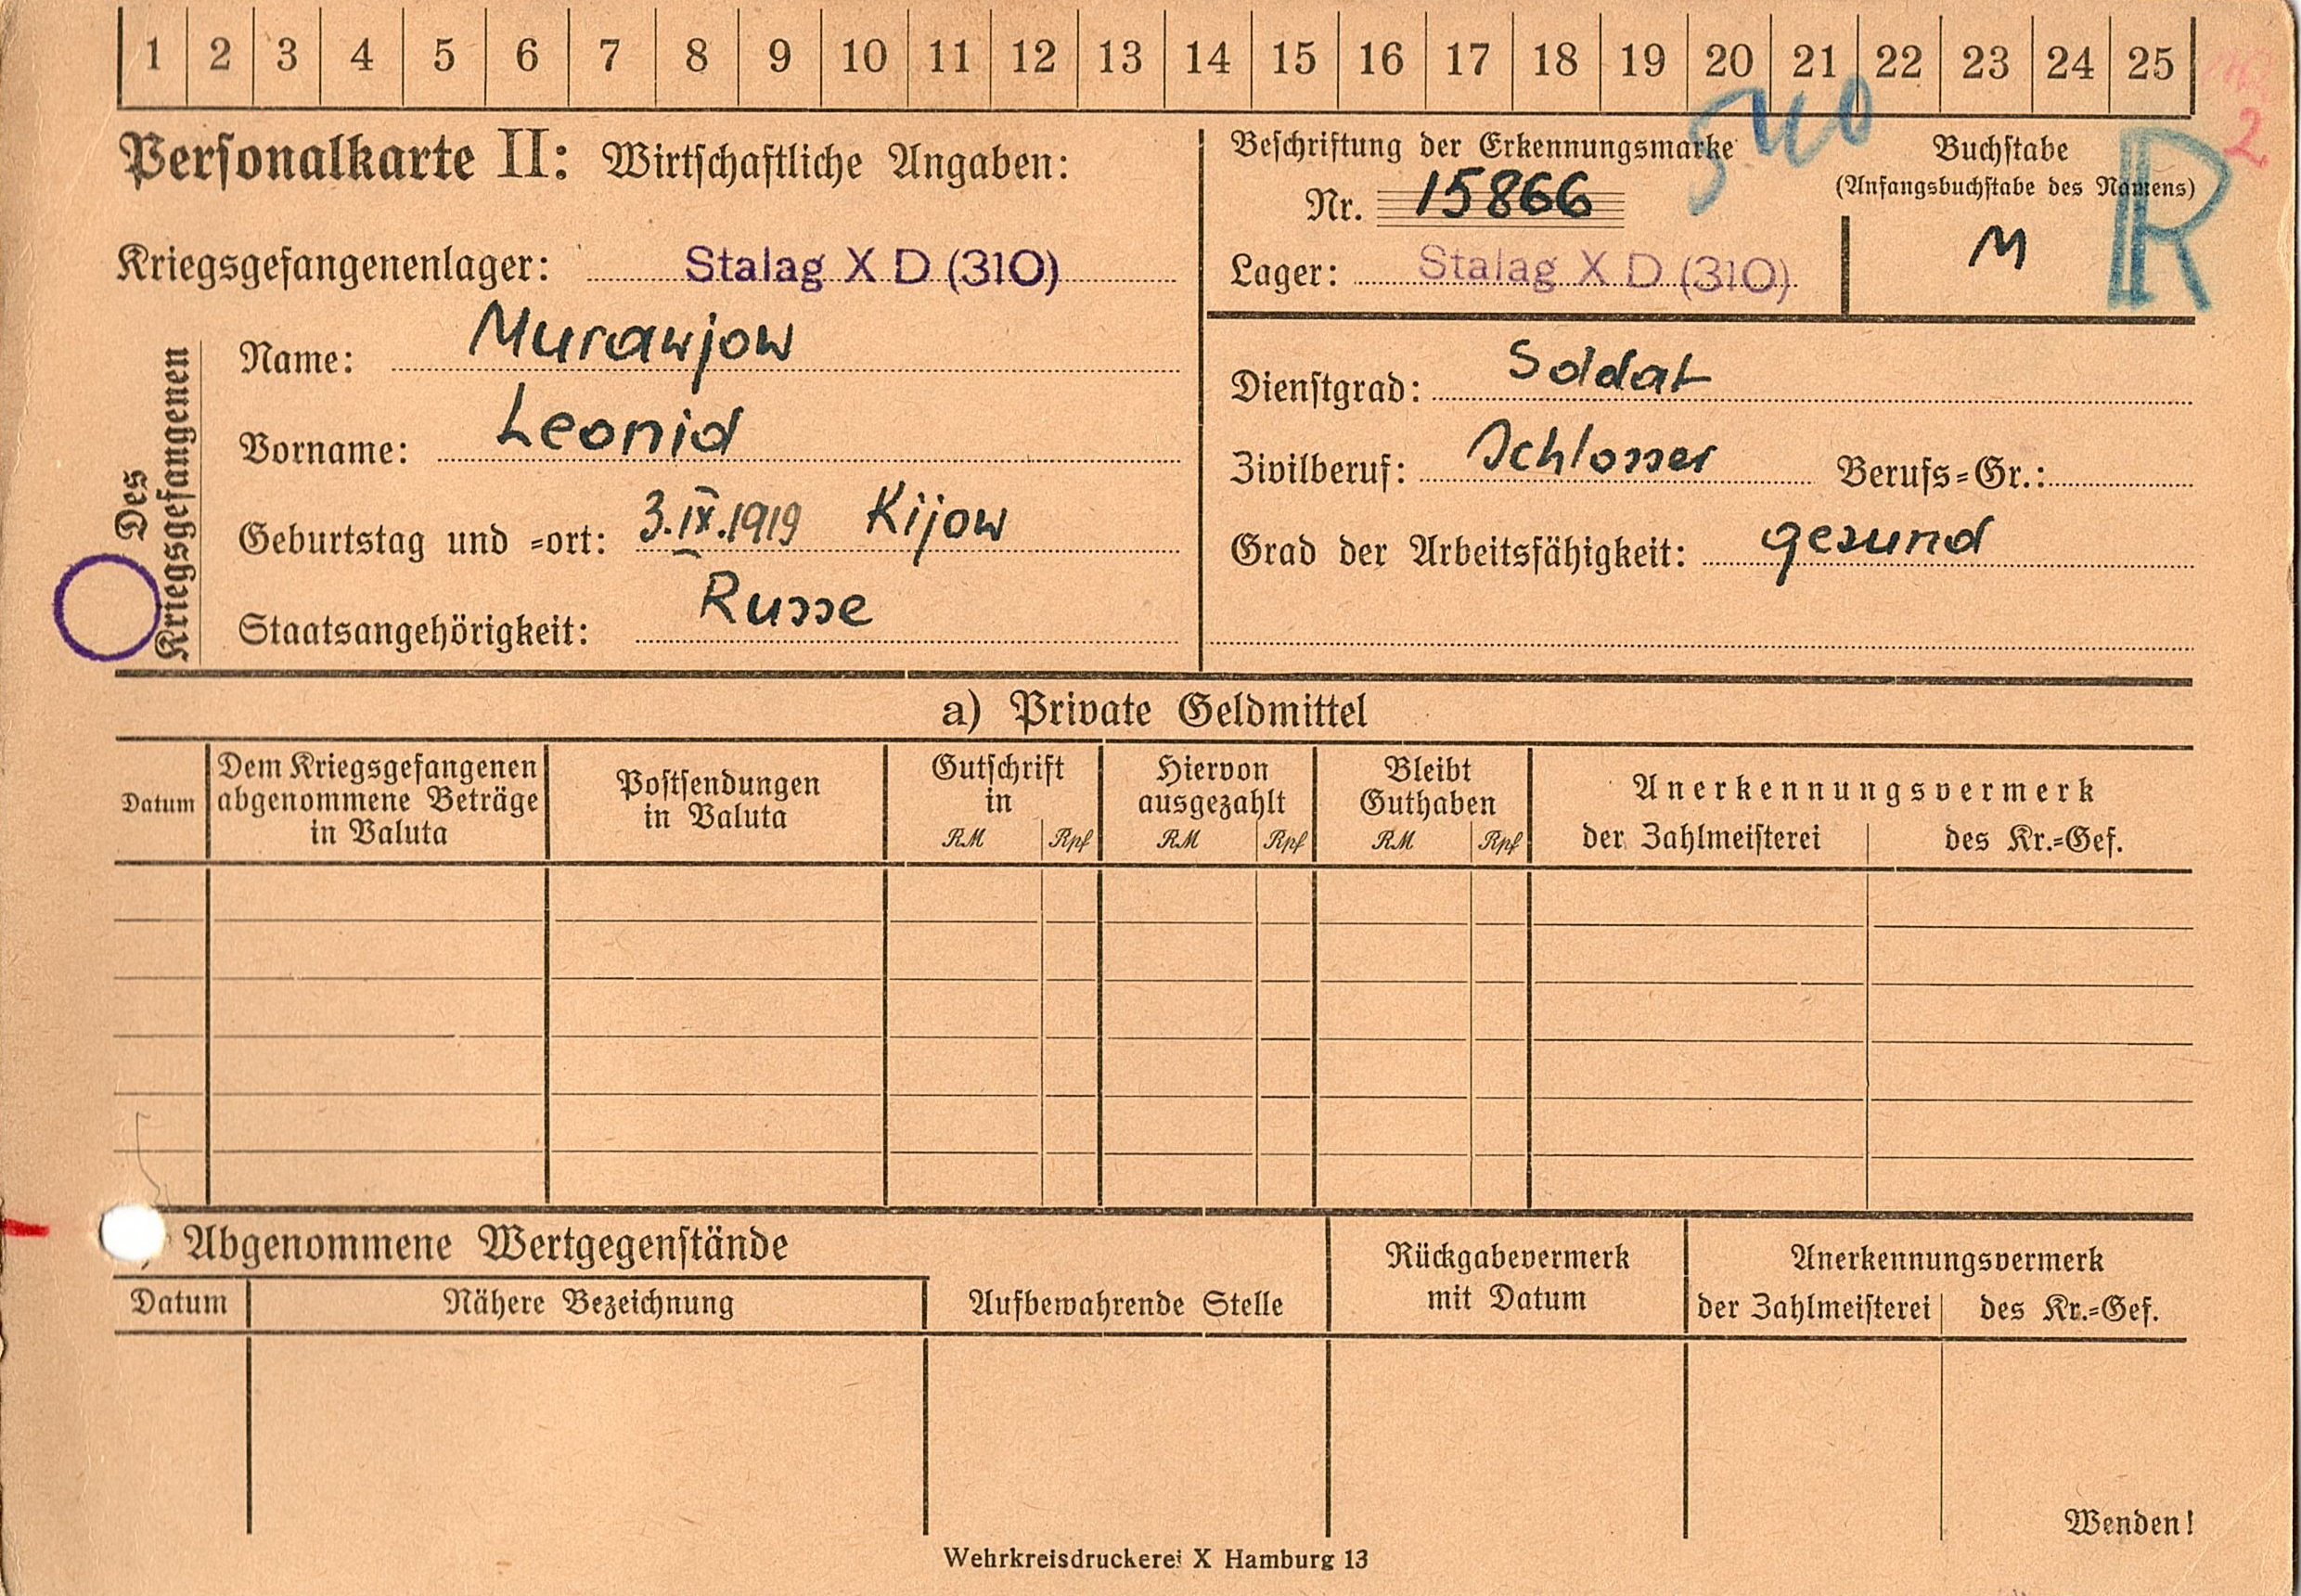 1 2 3 4 5 6 7 8 9 10 11 12 13 14 15 16 17 18 19 20 21 22 23 24 25
2
Personalkarte II: Wirtschaftliche Angaben:
Kriegsgefangenenlager: Stalag X D (310)
Des Kriegsgefangenen
Name: Murawjow
Vorname: Leonid
Geburtstag und =ort: 3.IX.1919 Kijow
Staatsangehörigkeit: Russe
Beschriftung der Erkennungsmarke
540
Nr. 15866
Lager: Stalag X D (310)
Buchstabe
(Anfangsbuchstabe des Namens)
M
R
Dienstgrad: Soldat
Zivilberuf: Schlosser Berufs=Gr.:
Grad der Arbeitsfähigkeit: gesund
a) Private Geldmittel
Datum
Dem Kriegsgefangenen
abgenommene Beträge
in Valuta
Postsendungen
in Valuta
Gutschrift
in
RM Rpf
Hiervon
ausgezahlt
RM Rpf
Bleibt
Guthaben
RM Rpf
Anerkennungsvermerk
der Zahlmeisterei des Kr.=Gef.
Abgenommene Wertgegenstände
Datum Nähere Bezeichnung
Aufbewahrende Stelle
Rückgabevermerk
mit Datum
Anerkennungsvermerk
der Zahlmeisterei des Kr.=Gef.
Wenden!
Wehrkreisdruckerei X Hamburg 13